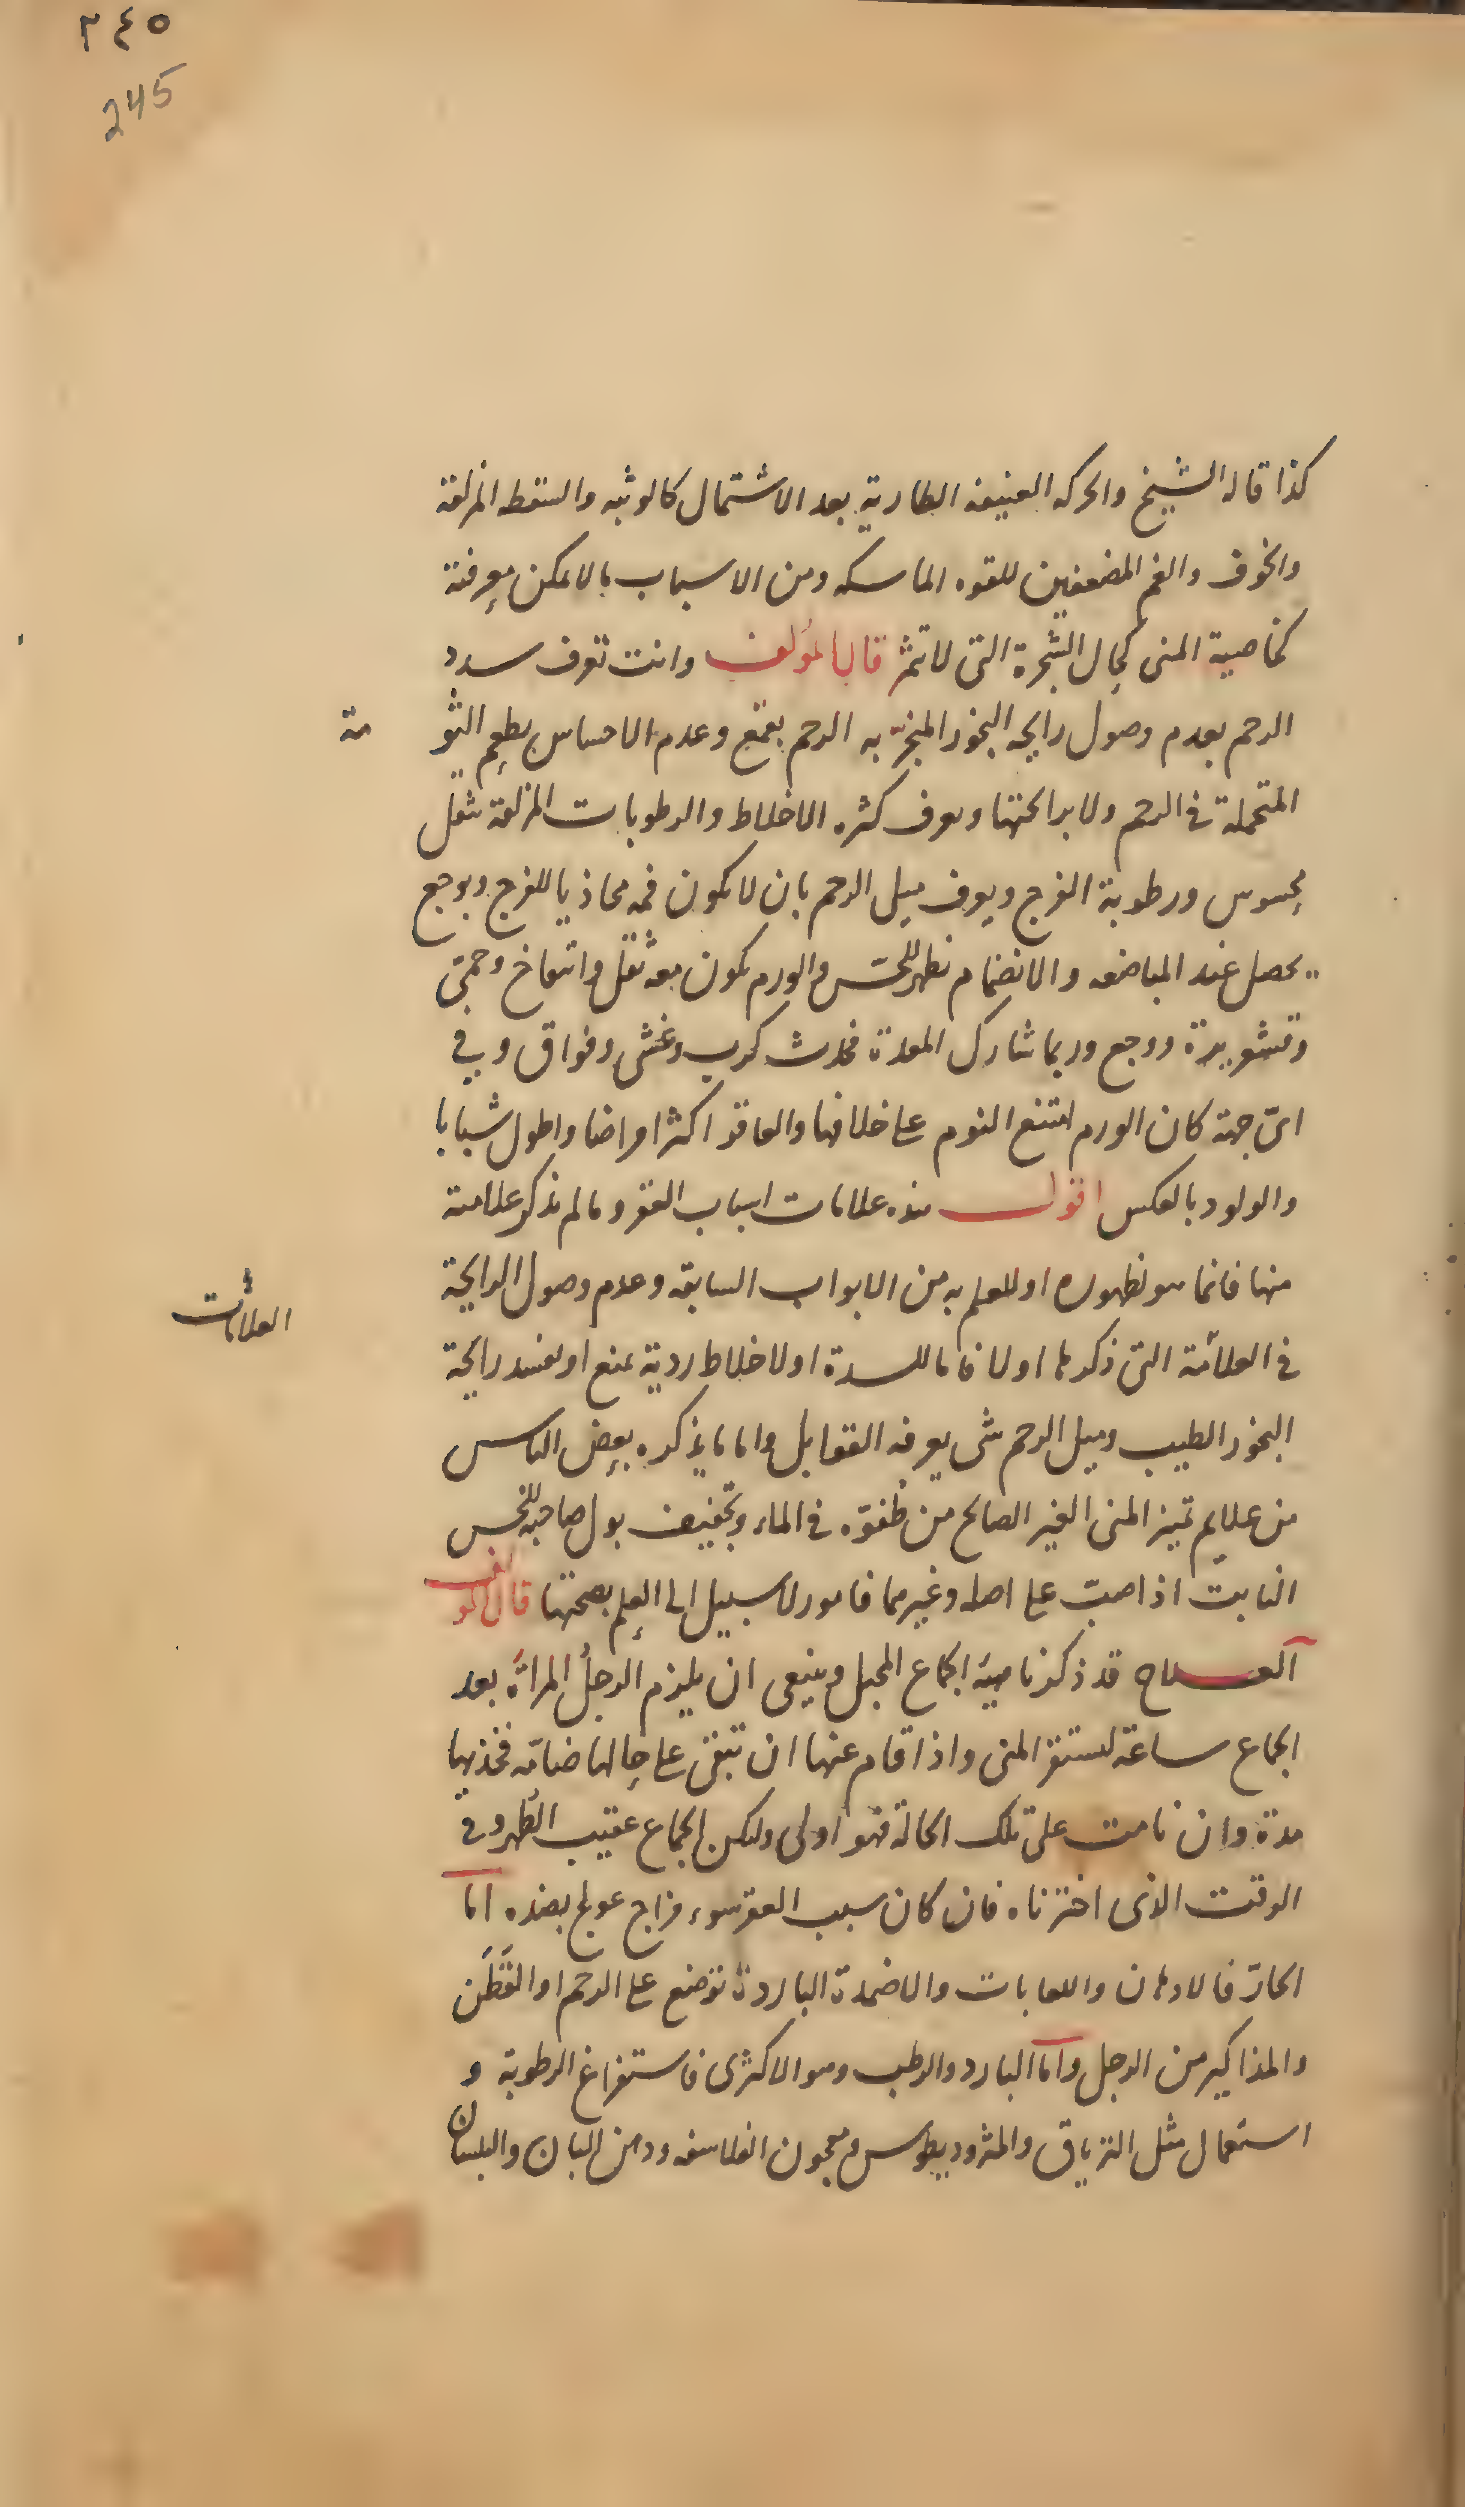 ٢٤٥
245
كذا قاله الشيخ والحركه العنيفه الطارية بعد الاشتمال كالوثبه والسقطه المزلقة
والخوف والغم المضعفين للقوه الماسكه ومن الاسباب ما لا يمكن معرفته
كخاصية المنى كحال الشجرة التى لا تثمر قال المؤلف وانت تعرف سدد
الرحم بعدم وصول رايحه البخور المبخر به الرحم بقمع وعدم الاحساس بطعم الثو مة
المتحملة فى الرحم ولا برائحتها ويعرف كثره الاخلاط والرطوبات المزلقة بثقل
محسوس ورطوبة الفرج ويعرف ميل الرحم بان لا يكون فمه محاذيا للفرج وبوجع
يحصل عند المباضعه والانضمام يظهر للحسّ والورم يكون معه ثقل وانتفاخ وحمّى
وقشعريرة ووجع وربما شارك المعدة فحدث كرب وغشى وفواق وفى
اىّ جهة كان الورم امتنع النوم على خلافها والعاقر اكثر امراضا واطول شبابا
والولود بالعكس اقول هذه علامات اسباب العقر وما لم يذكر علامته
منها فانما هو لظهوره او للعلم به من الابواب السابقه وعدم وصول الرايحة
العلامات
فى العلامة التى ذكرها اولا فاما للسدة او لاخلاط ردية تمنع او تفسد رايحة
البخور الطيب وميل الرحم شى يعرفه القوابل واما ما يذكره بعض الناس
من علايم تميز المنى الغير الصالح من طفوّه فى الماء وتجفيف بول صاحبه للخس
النابت اذا صبّ على اصله وغيرهما فامور لا سبيل الى العلم بصحتها قال المؤلف
العلاج قد ذكرنا هيئة الجماع المحبل وينبغى ان يلزم الرجل المراة بعد
الجماع ساعة ليستقر المنى واذا قام عنها ان تبقى على حالها ضامّه فخذيها
مدة وان نامت على تلك الحالة فهو اولى وليكن الجماع عقيب الطهر وفى
الوقت الذى اخترناه فان كان سبب العقر سوء مزاج عولج بضده اما
الحارّ فالادهان واللعابات والاضمدة الباردة توضع على الرحم او القَطَن
والمذاكير من الرجل واما البارد والرطب وهو الاكثرى فاستفراغ الرطوبة و
استعمال مثل الترياق والمثروديطوس ومعجون الفلاسفه ودهن البان والبلسان